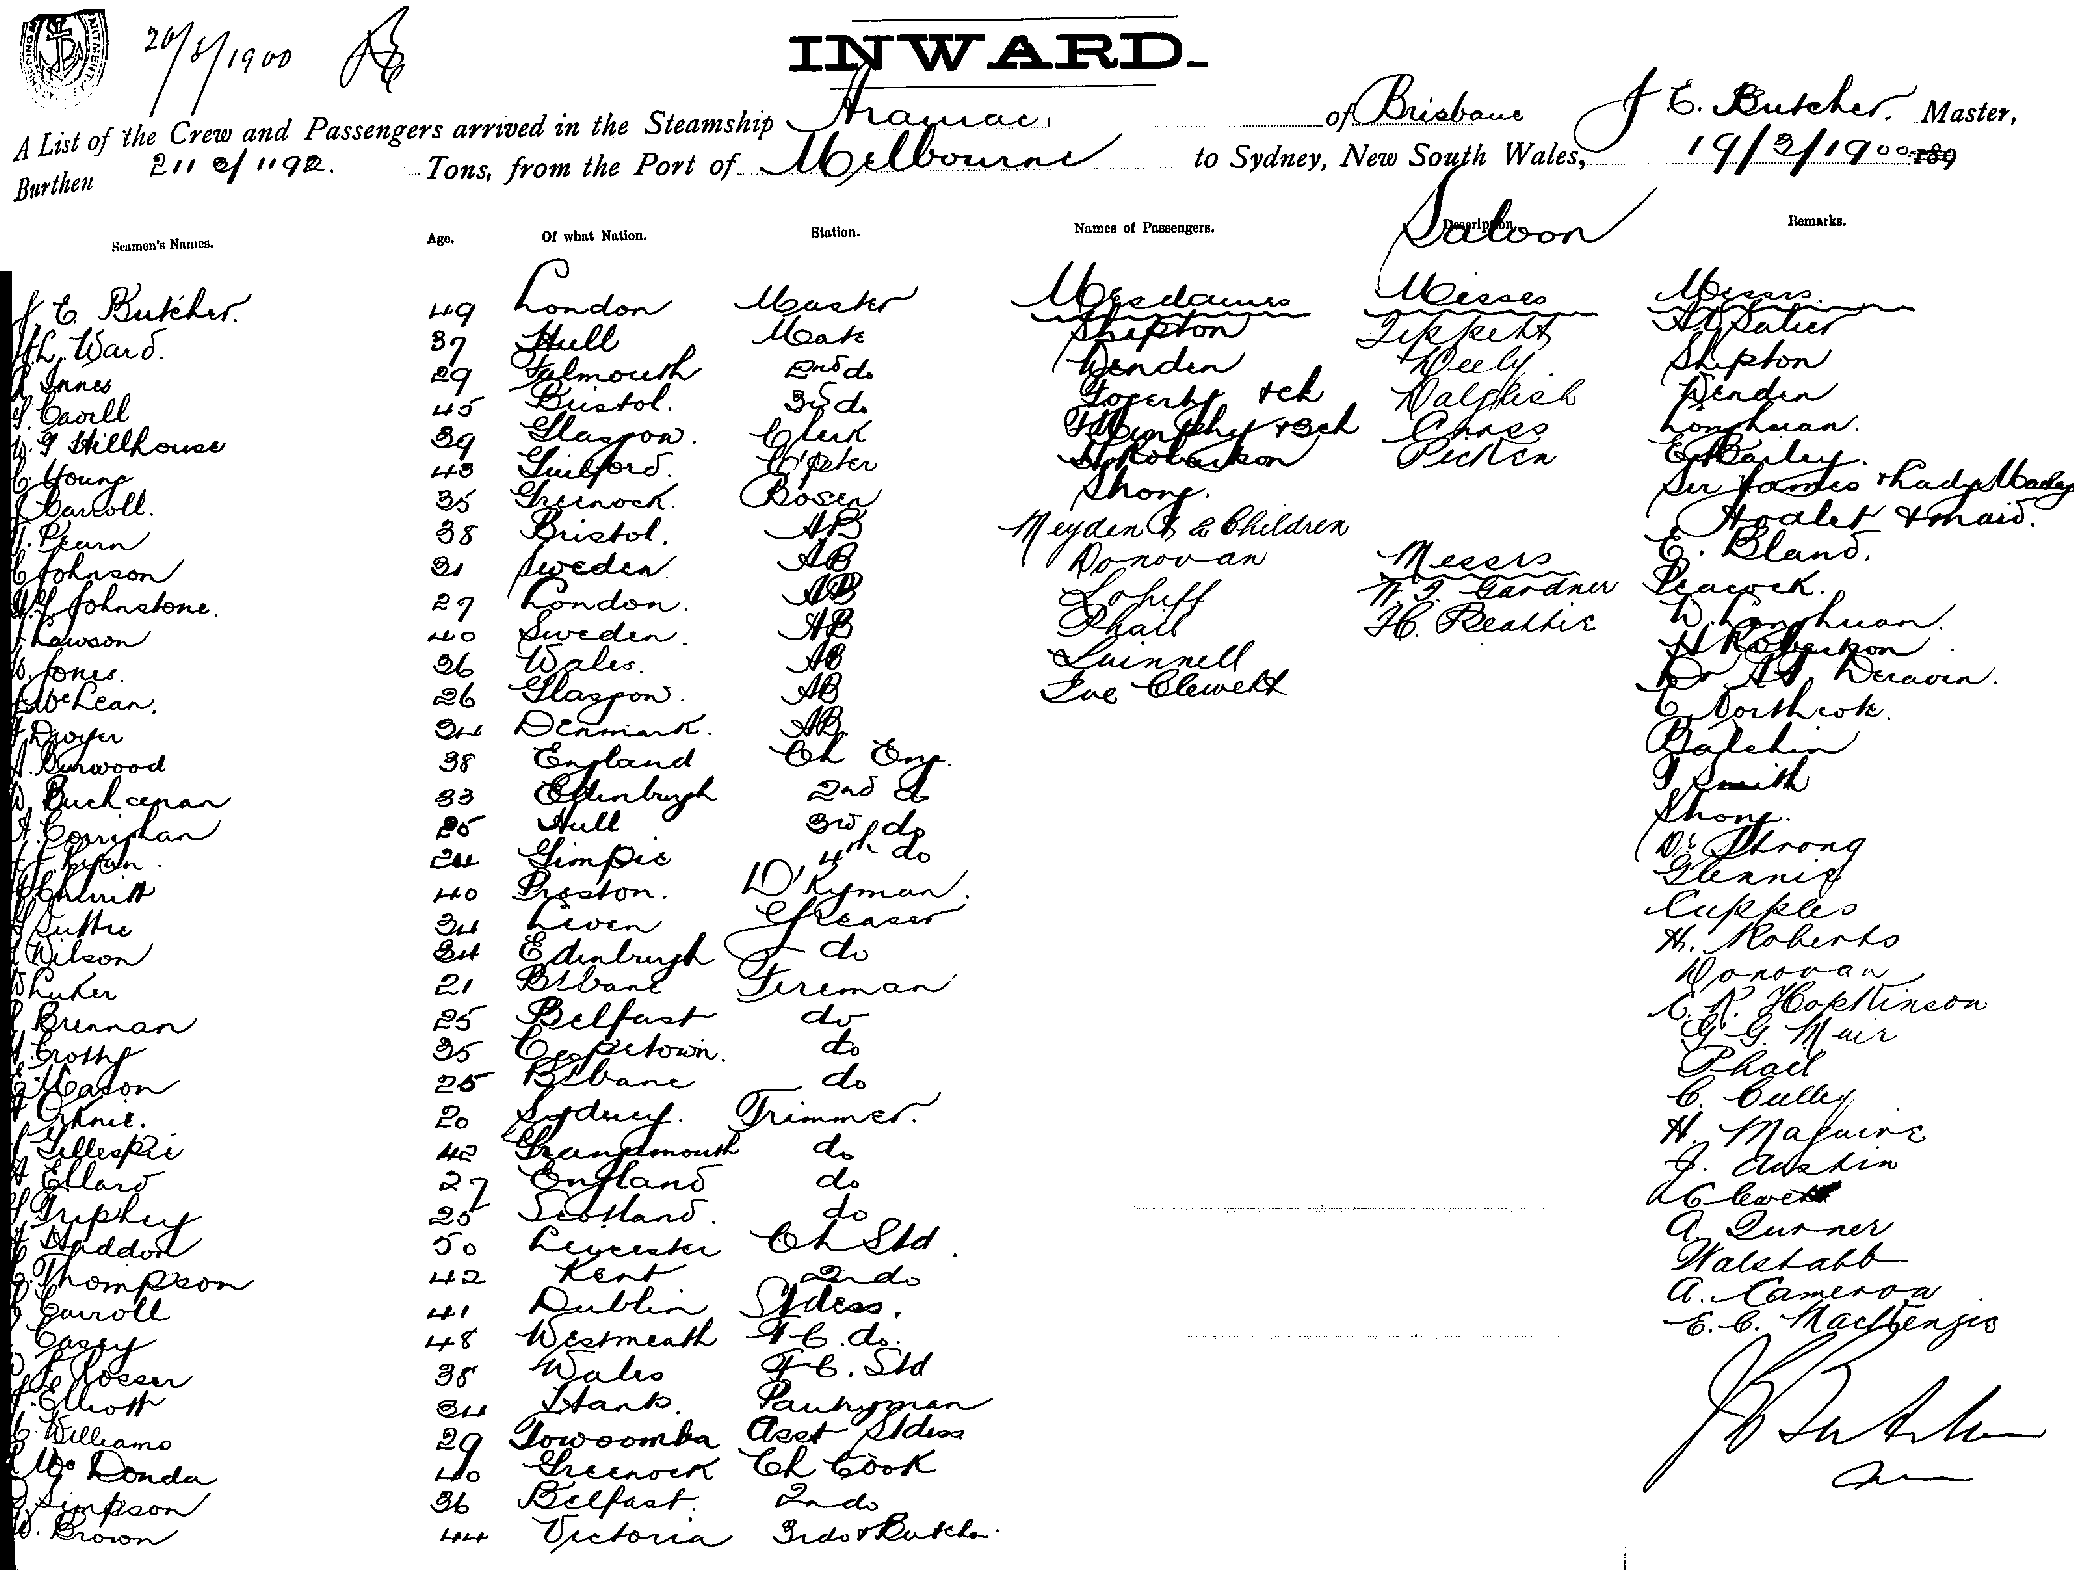 20/3/1900
INWARD.
A List of the Crew and Passengers arrived in the Steamship Aramac, of Brisbane J E. Butcher. Master,
Burthen 2112/1192. Tons, from the Port of Melbourne to Sydney, New South Wales, 19/3/1900 189
Saloon
Seamen's Names. Age. Of what Nation. Station. Names of Passengers. Description. Remarks.
J E. Butcher. 49 London Master Mesdames Misses Messrs.
Ward. 37 Hull Mate Shipton Tippett
Innes 29 Falmouth 2nd do Denden Neely Shipton
Cavill 45 Bristol. 3rd do Fogerty & ch Dalglish Denden
Hillhouse 39 Glasgow. Clerk Murphy & 3 ch Cross Longhuan.
Young 43 Guilford. C'pter Robertson Picken E Bailey.
Carroll. 35 Greenock. Bosen Shong. Sir James & Lady
Pearn 38 Bristol. AB Meyden & 2 Children & maid.
Johnson 31 Sweden AB Donovan Messrs E. Bland.
Johnstone. 27 London. AB W. J. Gardner Peacock.
Lawson 40 Sweden. AB Phail H. Beattie D Longhuan.
Jones. 36 Wales. AB Luinnell H Robertson
McLean. 26 Glasgow. AB Clewett Dr
Dwyer 34 Denmark. AB C. Northcote.
Burwood 38 England Ch Eng. Balchin
Buchanan 33 Edinburgh 2nd do Smith
Corrighan 25 Hull 3rd do Shong.
24 Gimpie 4th do Dr Strong
40 Preston. D'kyman. Glennie
Suttie 34 Leven Greaser Cupples
Wilson 34 Edinburgh do H. Roberts
Luker 21 B'bane Fireman Donovan
Brennan 25 Belfast do C. R. Hopkinson
Crotty 35 Capetown. do G. G. Muir
Mason 25 B'bane do Phail
20 Sydney. Trimmer. C. Culley
Gillespie 42 Grangemouth do H. Maguire
Ellard 27 England do J. Austin
25 Scotland. do Clewett
Haddon 50 Leicester Ch Std. A. Turner
Thompson 42 Kent 2nd do Walstabb
Carroll 41 Dublin St'dess. A. Cameron
Casey 48 Westmeath F C. do. E. C. MacKenzie
Rosser 38 Wales F C. Std
Elliott 34 Hants. Pantryman J E Butcher
Williams 29 Towoomba Asst St'dess
40 Greenock Ch Cook
Simpson 36 Belfast. 2nd do
Brown 44 Victoria 3rd do & Butcher.